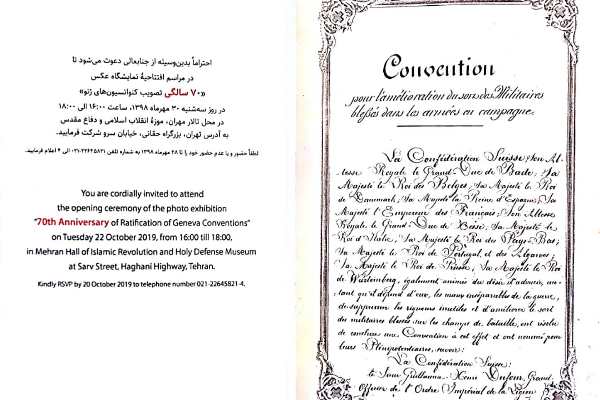 احتراماً بدین‌وسیله از جنابعالی دعوت می‌شود تا
در مراسم افتتاحیهٔ نمایشگاه عکس
«۷۰ سالگی تصویب کنوانسیون‌های ژنو»
در روز سه‌شنبه ۳۰ مهرماه ۱۳۹۸، ساعت ۱۶:۰۰ الی ۱۸:۰۰
در محل تالار مهران، موزهٔ انقلاب اسلامی و دفاع مقدس
به آدرس تهران، بزرگراه حقانی، خیابان سرو شرکت فرمایید.
لطفاً حضور و یا عدم حضور خود را تا ۲۸ مهرماه ۱۳۹۸ به شماره تلفن ۰۲۱-۲۲۶۴۵۸۲۱ الی ۴ اعلام فرمایید.
You are cordially invited to attend
the opening ceremony of the photo exhibition
"70th Anniversary of Ratification of Geneva Conventions"
on Tuesday 22 October 2019, from 16:00 till 18:00,
in Mehran Hall of Islamic Revolution and Holy Defense Museum
at Sarv Street, Haghani Highway, Tehran.
Kindly RSVP by 20 October 2019 to telephone number 021-22645821-4.
Convention
pour l'amélioration du sort des Militaires
blessés dans les armées en campagne.
La Confédération Suisse, Son Al-
tesse Royale le Grand-Duc de Bade, Sa
Majesté le Roi des Belges, Sa Majesté le Roi
de Danemark, Sa Majesté la Reine d'Espagne, Sa
Majesté l'Empereur des Français, Son Altesse
Royale le Grand-Duc de Hesse, Sa Majesté le
Roi d'Italie, Sa Majesté le Roi des Pays-Bas,
Sa Majesté le Roi de Portugal et des Algarves,
Sa Majesté le Roi de Prusse, Sa Majesté le Roi
de Würtemberg, également animés du désir d'adoucir, au-
tant qu'il dépend d'eux, les maux inséparables de la guerre,
de supprimer les rigueurs inutiles et d'améliorer le sort
des militaires blessés sur les champs de bataille, ont résolu
de conclure une Convention à cet effet et ont nommé pour
leurs Plénipotentiaires, savoir:
La Confédération Suisse:
le Sieur Guillaume-Henri Dufour, Grand
Officier de l'Ordre Impérial de la Légion